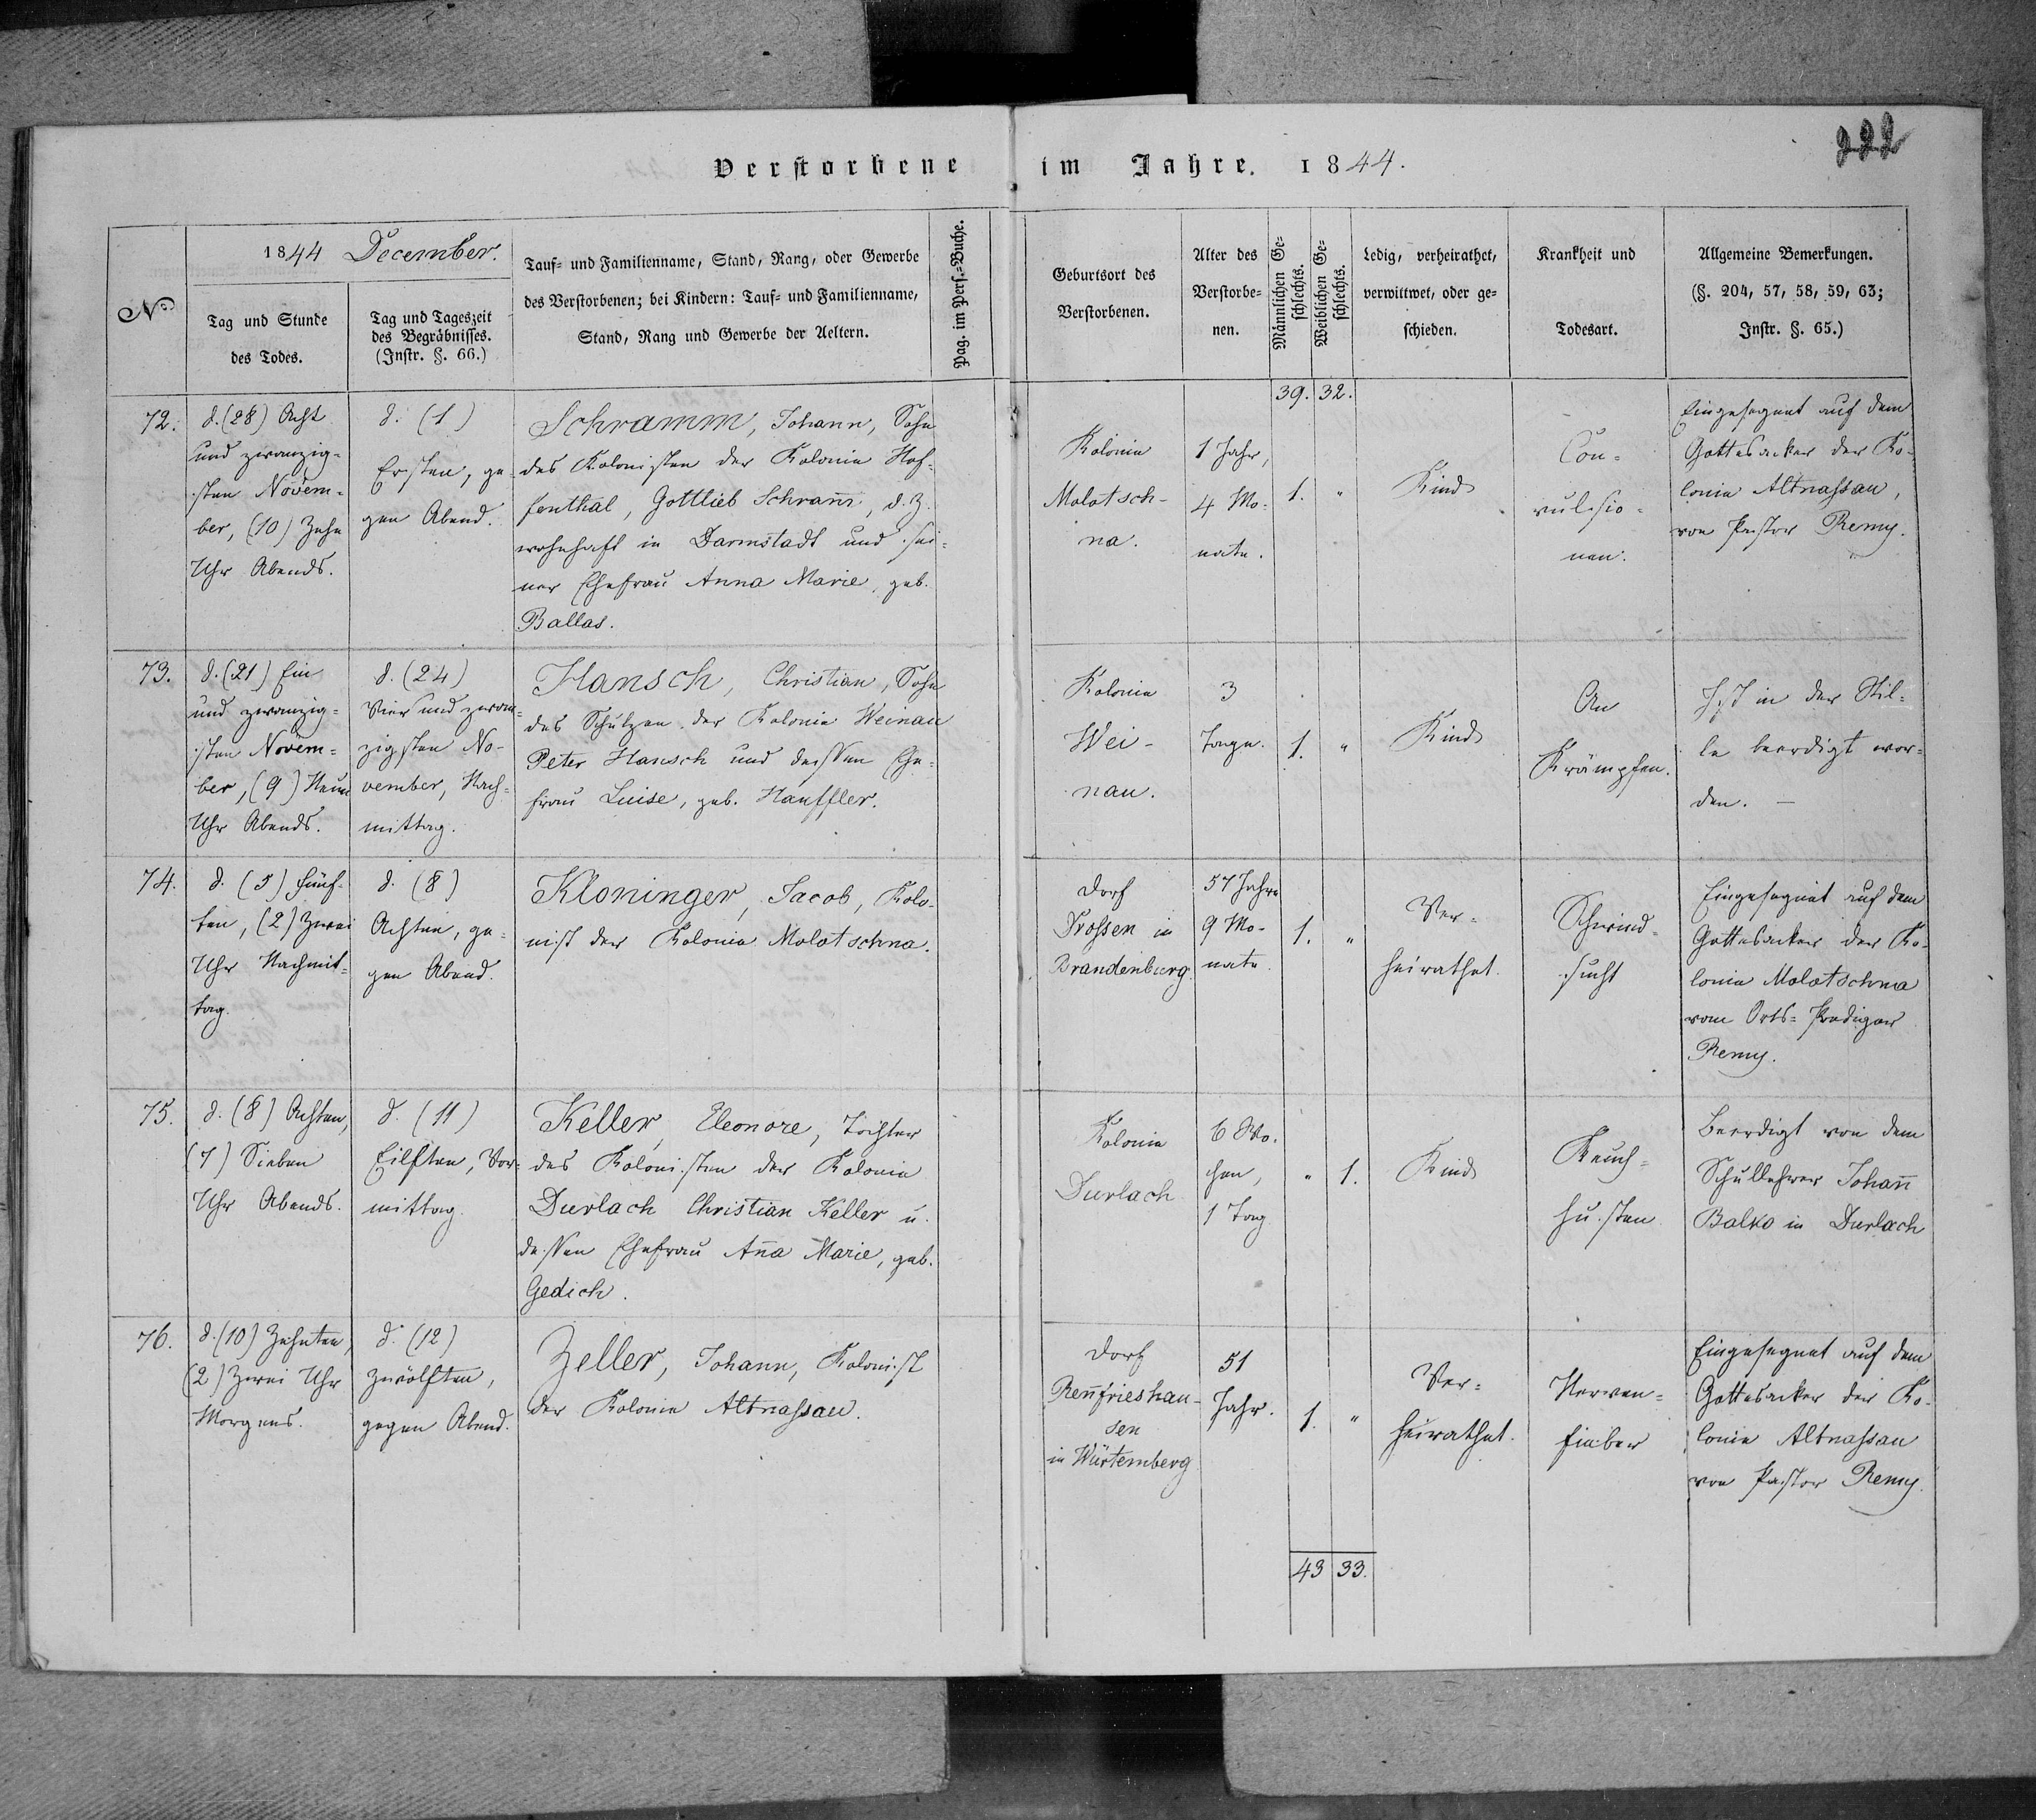 222
Verstorbene im Jahre. 1844.
No
1844 December.
Tag und Stunde
des Todes.
Tag und Tageszeit
des Begräbnisses.
(Instr. §. 66.)
Tauf- und Familienname, Stand, Rang, oder Gewerbe
des Verstorbenen; bei Kindern: Tauf- und Familienname,
Stand, Rang und Gewerbe der Aeltern.
Pag. im Pers.-Buche.
Geburtsort des
Verstorbenen.
Alter des
Verstorbe-
nen.
Männlichen Ge-
schlechts.
Weiblichen Ge-
schlechts.
Ledig, verheirathet,
verwittwet, oder ge-
schieden.
Krankheit und
Todesart.
Allgemeine Bemerkungen.
(§. 204, 57, 58, 59, 63;
Instr. §. 65.)
39. 32.
72.
d. (28) Acht
und zwanzig-
sten Novem-
ber, (10) Zehn
Uhr Abends.
d. (1)
Ersten, ge-
gen Abend.
Schramm, Johann, Sohn
des Kolonisten der Kolonie Hof-
fenthal, Gottlieb Schram̄, d. Z.
wohnhaft in Darmstadt und sei-
ner Ehefrau Anna Marie, geb.
Ballas.
Kolonie
Molotsch-
na.
1 Jahr,
4 Mo-
nate.
1. "
Kind
Con-
vulsio-
nen.
Eingesegnet auf dem
Gottesacker der Ko-
lonie Altnassau,
von Pastor Remy.
73.
d. (21) Ein
und zwanzig-
sten Novem-
ber, (9) Neun
Uhr Abends.
d. (24)
Vier und zwan-
zigsten No-
vember, Nach-
mittag.
Hansch, Christian, Sohn
des Schulzen der Kolonie Weinau
Peter Hansch und dessen Ehe-
frau Luise, geb. Hauffler.
Kolonie
Wei-
nau.
3
Tage.
1. "
Kind
An
Krämpfen.
Ist in der Stil-
le beerdigt wor-
den. —
74.
d. (5) Fünf-
ten, (2) Zwei
Uhr Nachmit-
tag.
d. (8)
Achten, ge-
gen Abend.
Kloninger, Jacob, Kolo-
nist der Kolonie Molotschna.
Dorf
Trossen in
Brandenburg.
57 Jahre
9 Mo-
nate.
1. "
Ver-
heirathet.
Schwind-
sucht
Eingesegnet auf dem
Gottesacker der Ko-
lonie Molotschna
vom Orts-Prediger
Remy.
75.
d. (8) Achten,
(7) Sieben
Uhr Abends.
d. (11)
Eilften, Vor-
mittag.
Keller, Eleonore, Tochter
des Kolonisten der Kolonie
Durlach Christian Keller u.
dessen Ehefrau An̄a Marie, geb.
Gedich.
Kolonie
Durlach
6 Wo-
chen,
1 Tag
" 1.
Kind
Keuch-
husten
Beerdigt von dem
Schullehrer Johan̄
Balko in Durlach
76.
d. (10) Zehnten,
(2) Zwei Uhr
Morgens.
d. (12)
Zwölften,
gegen Abend.
Zeller, Johann, Kolonist
der Kolonie Altnassau.
Dorf
Ren̄frieshau-
sen
in Würtemberg
51
Jahr.
1. "
Ver-
heirathet.
Nerven-
fieber
Eingesegnet auf dem
Gottesacker der Ko-
lonie Altnassau
von Pastor Remy.
43 33.